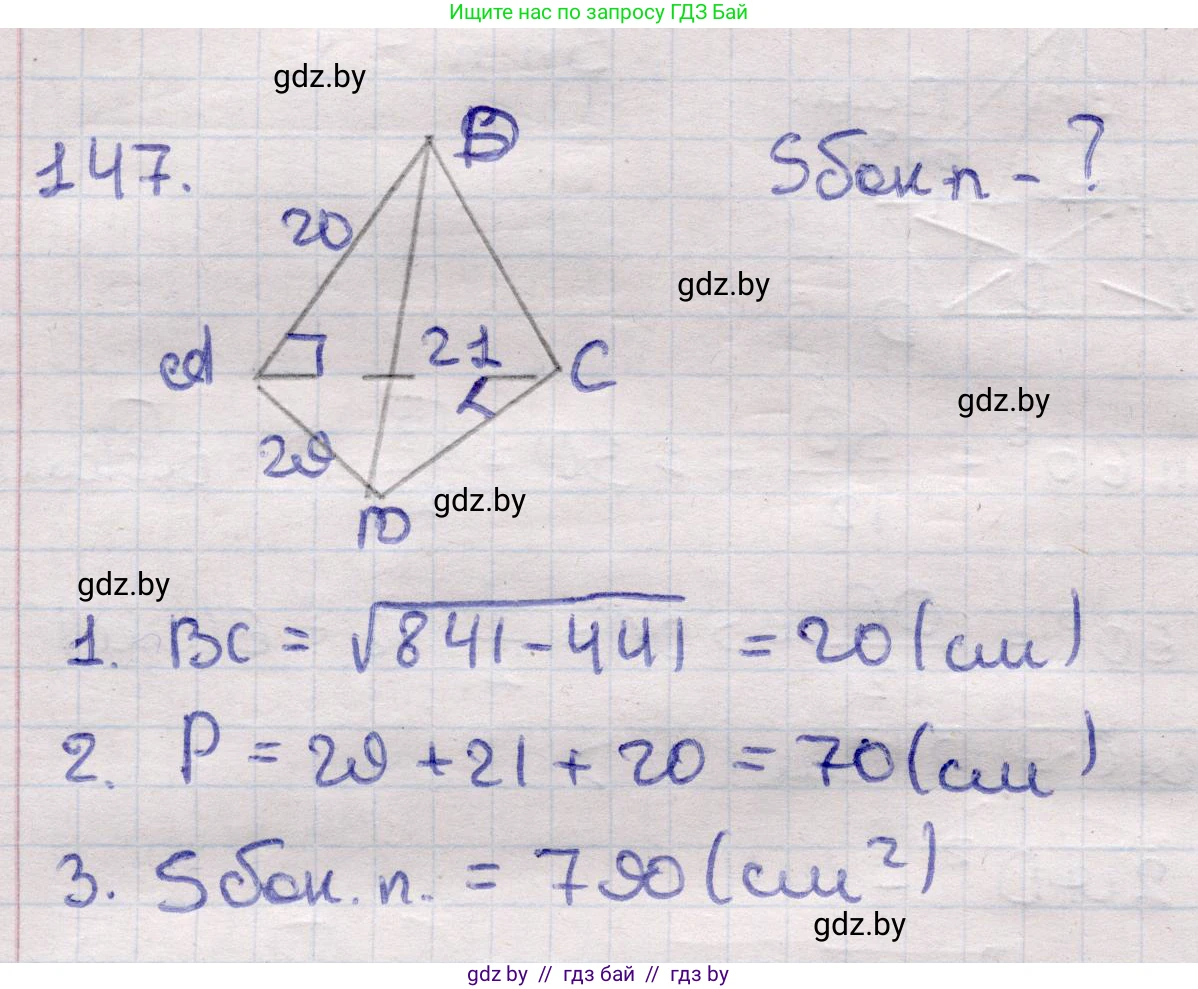 Ищите нас по запросу ГДЗ Бай
gdz.by
147.
B
Sбок п - ?
20
gdz.by
A
21
C
gdz.by
29
gdz.by
D
gdz.by
1. BC = √841-441 = 20 (см)
2. P = 29 + 21 + 20 = 70 (см)
3. Sбок. п. = 790 (см²)
gdz.by
gdz by // гдз бай // гдз by